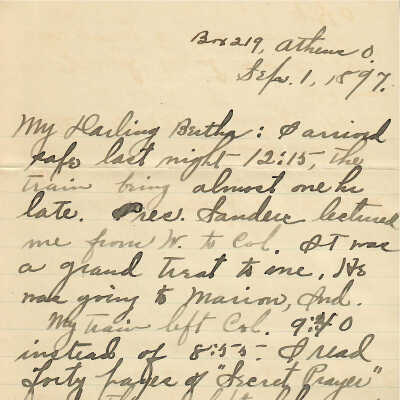 Box 219, Athens O.
Sep. 1, 1897.
My Darling Bertha: I arrived
safe last night 12:15, the
train being almost one hr
late. Pres. Sanders lectured
me from W. to Col. It was
a grand treat to me. He
was going to Marion, Ind.
My train left Col. 9:40
instead of 8:55. I read
forty pages of "Secret Prayer"